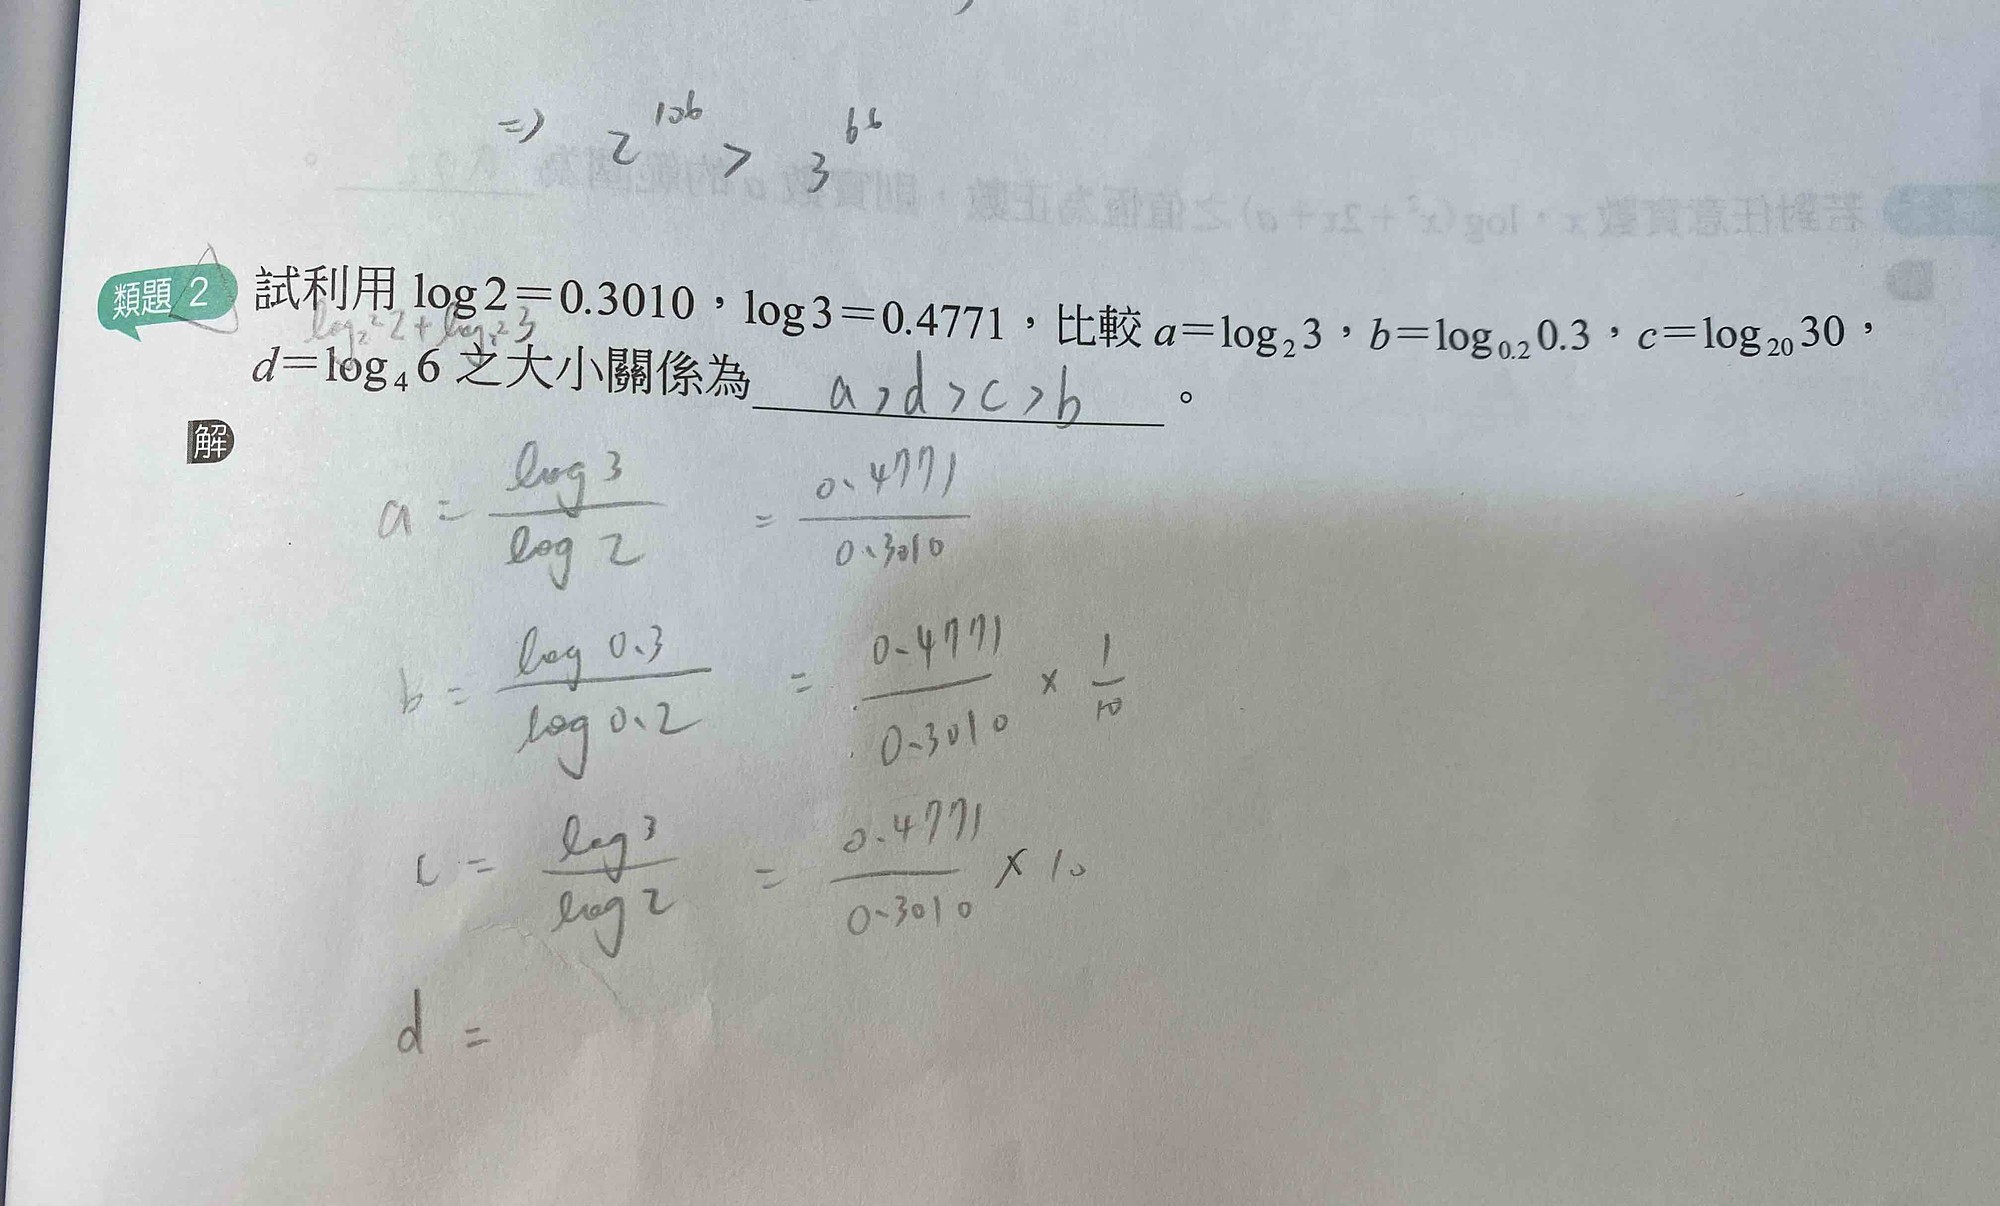 ⇒ 2^106 > 3^66
類題 2 試利用 log2=0.3010，log3=0.4771，比較 a=log₂3，b=log₀.₂0.3，c=log₂₀30，
log₂²2+log₂²3
d=log₄6 之大小關係為 a>d>c>b 。
解
a = log 3 / log 2 = 0.4771 / 0.3010
b = log 0.3 / log 0.2 = 0.4771 / 0.3010 × 1/10
c = log 3 / log 2 = 0.4771 / 0.3010 × 10
d =